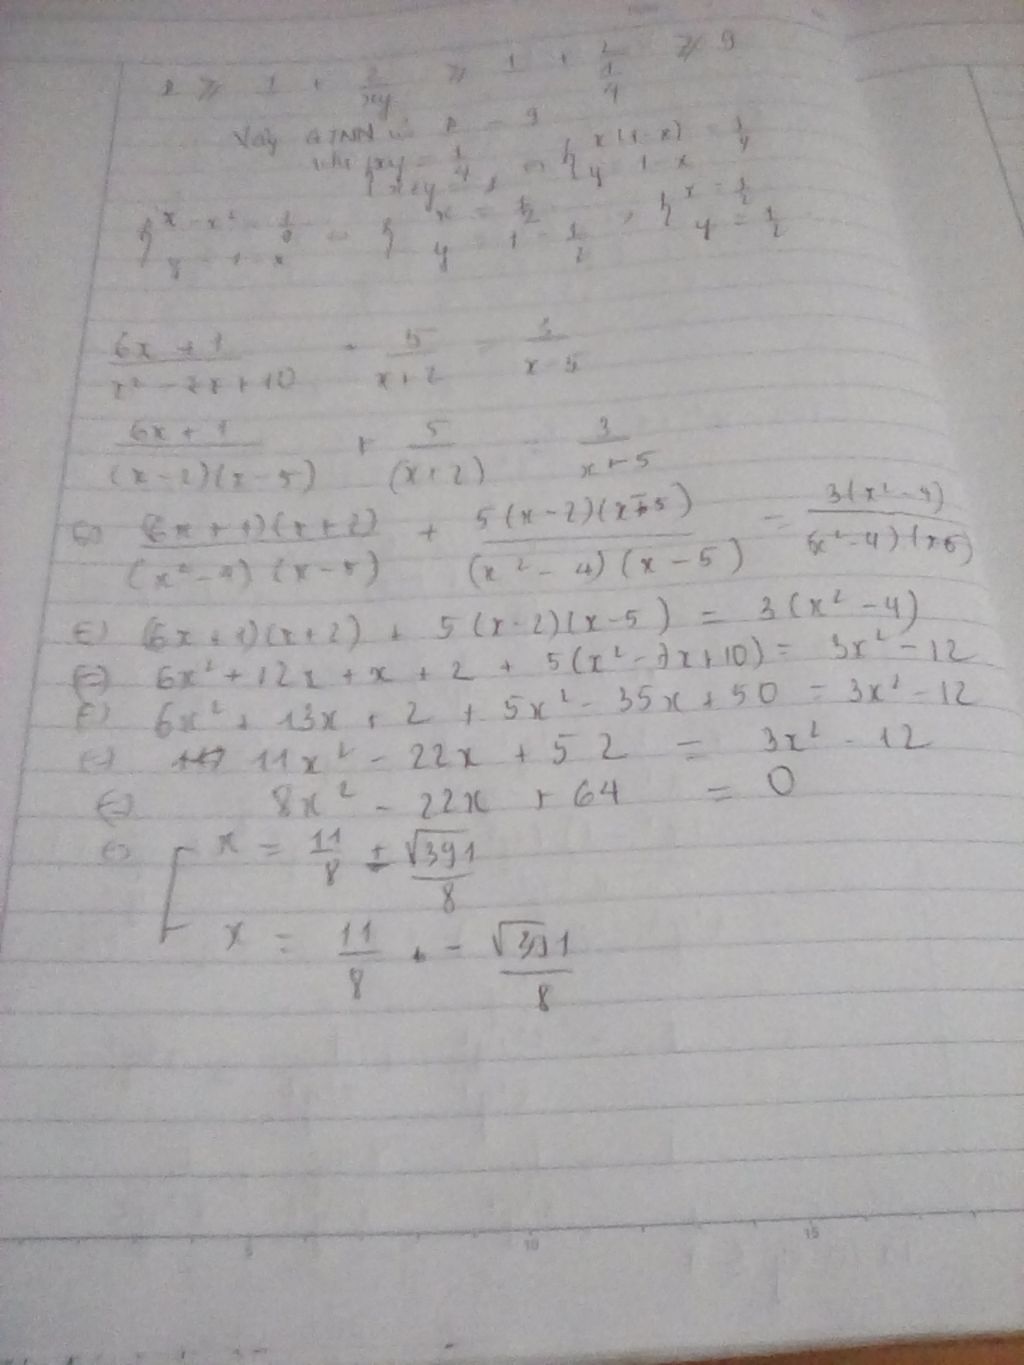 ≥ 1 + 2/xy ≥ 1 + 2/(1/4) ≥ 9
Vậy GTNN = 9
khi { xy = 1/4 x + y = 1 { x(1 - x) = 1/4 y = 1 - x
{ x - x² = 1/4 { x = 1/2 y = 1 - 1/2 , { x = 1/2 y = 1/2
(6x + 1)/(x² - 7x + 10) 5/(x + 2) 3/(x - 5)
(6x + 1)/((x - 2)(x - 5)) + 5/(x + 2) = 3/(x - 5)
<=> (6x + 1)(x + 2)/((x² - 4)(x - 5)) + 5(x - 2)(x - 5)/((x² - 4)(x - 5)) = 3(x² - 4)/((x² - 4)(x - 5))
<=> (6x + 1)(x + 2) + 5(x - 2)(x - 5) = 3(x² - 4)
<=> 6x² + 12x + x + 2 + 5(x² - 7x + 10) = 3x² - 12
<=> 6x² + 13x + 2 + 5x² - 35x + 50 = 3x² - 12
<=> 11x² - 22x + 52 = 3x² - 12
<=> 8x² - 22x + 64 = 0
<=> [ x = 11/8 + √391/8
x = 11/8 - √391/8
5 10 15